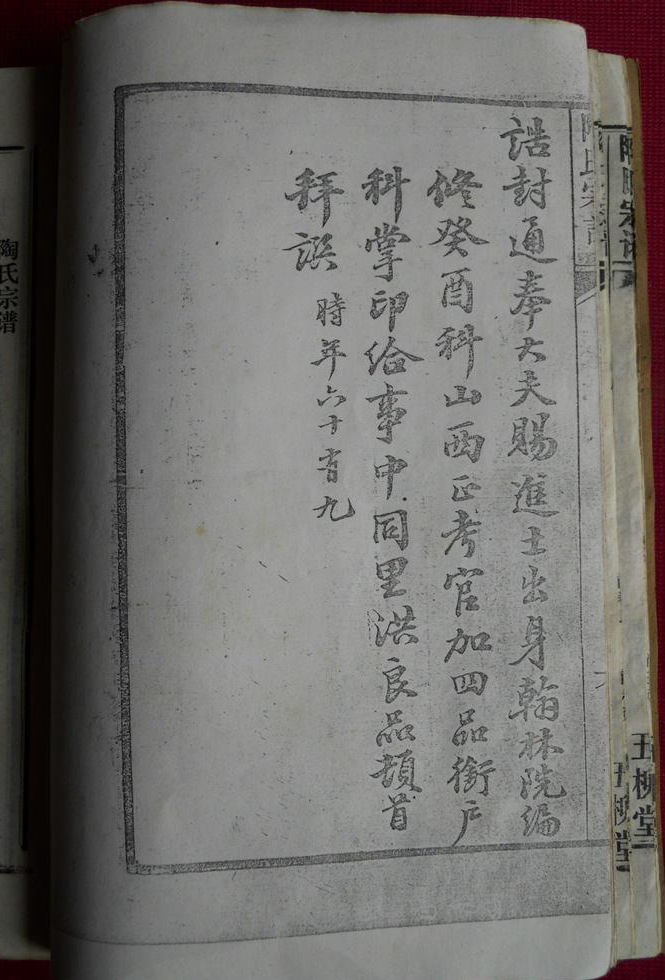 陶氏宗譜
五柳堂
五柳堂
陶氏宗譜
誥封通奉大夫賜進士出身翰林院編
修癸酉科山西正考官加四品銜户
科掌印給事中同里洪良品頓首
拜譔 時年六十有九
陶氏宗谱